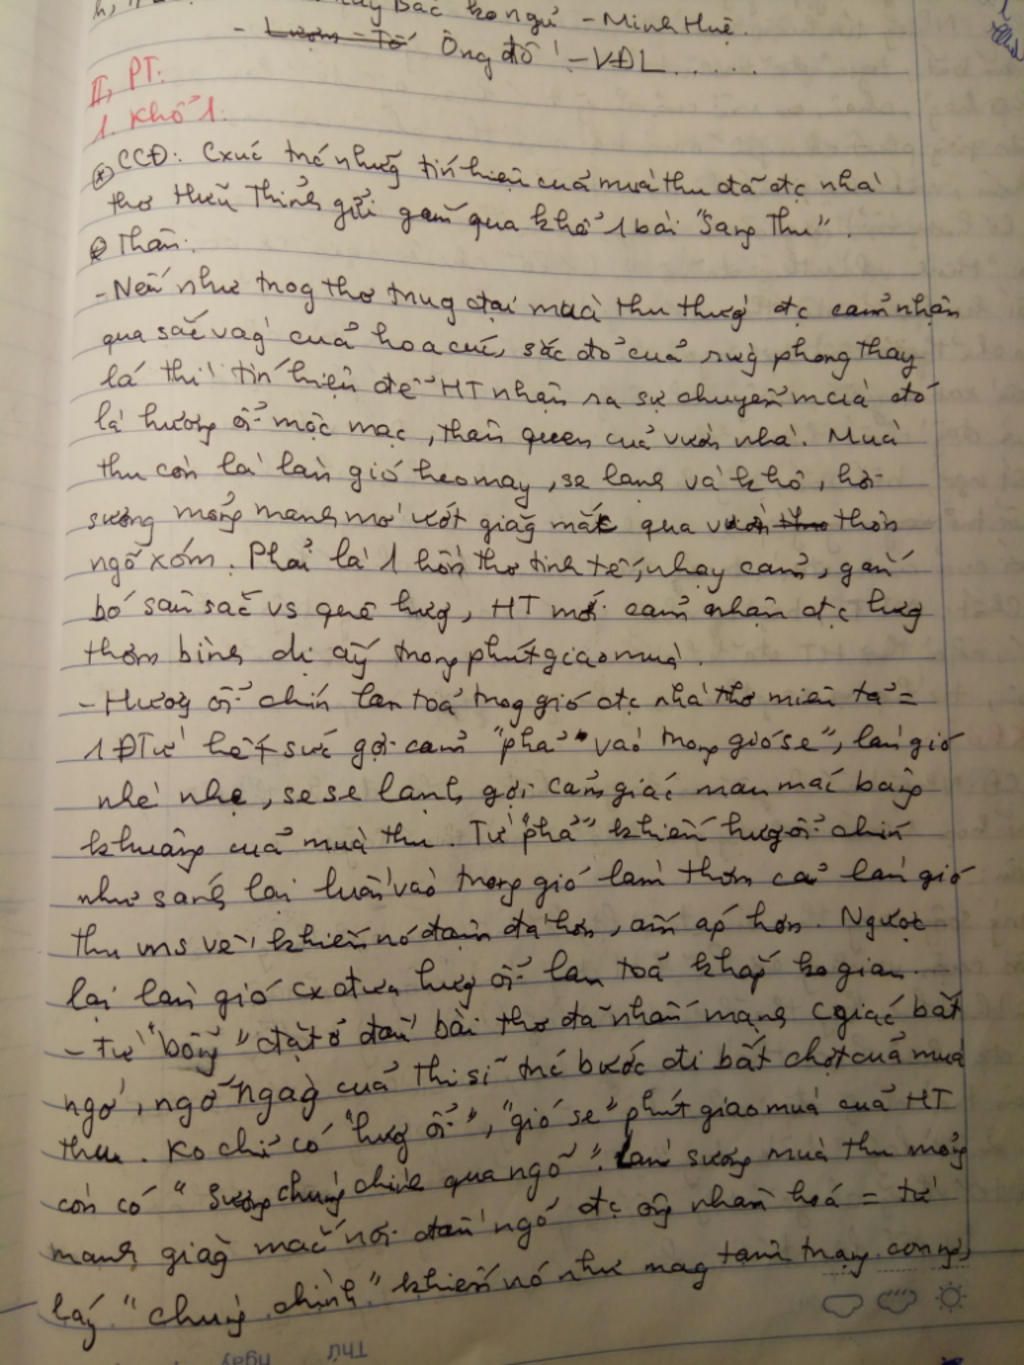 Bác ko ngủ - Minh Huệ.
- Lượm - Tố Ông đồ - VĐL.....
II, PT:
1. Khổ 1:
CCĐ: Cxuc trc những tín hiệu của mùa thu đã đc nhà
thơ Hữu Thỉnh gửi gắm qua khổ 1 bài "Sang Thu".
Thân:
- Nếu như trog thơ trug đại mùa thu thườg đc cảm nhận
qua sắc vàg của hoa cúc, sắc đỏ của rừg phong thay
lá thì tín hiệu để HT nhận ra sự chuyển mùa đó
là hương ổi mộc mạc, thân quen của vườn nhà. Mùa
thu còn là làn gió heo may, se lạnh và khô, hơi
sương mỏng manh mơ ướt giăg mắc qua vườn thôn
ngõ xóm. Phải là 1 hồn thơ tinh tế, nhạy cảm, gắn
bó sâu sắc vs quê hươg, HT mới cảm nhận đc hươg
thơm bình dị ấy trong phút giao mùa.
- Hương ổi chín lan toả trog gió đc nhà thơ miêu tả =
1 ĐTừ hết sức gợi cảm "phả" vào trong gió se", làn gió
nhè nhẹ, se se lạnh, gợi cảm giác man mác bâng
khuâng của mùa thu. Từ "phả" khiến hươg ổi chín
như sánh lại luồn vào trong gió làm thơm cả làn gió
thu ms về, khiến nó đậm đà hơn, ấm áp hơn. Ngược
lại làn gió cx đưa hươg ổi lan toả khắp ko gian.
- Từ "bỗng" đặt ở đầu bài thơ đã nhấn mạnh cgiác bất
ngờ, ngỡ ngàg của thi sĩ trc bước đi bất chợt của mùa
thu. Ko chỉ có "hươg ổi", "gió se" phút giao mùa của HT
còn có "Sương chùng chình qua ngõ". Làn sương mùa thu mỏng
manh giăg mắc nơi đầu ngõ đc ôg nhân hoá = từ
láy "chùng chình" khiến nó như mag tâm trạng con ng,
Thứ
Ngày